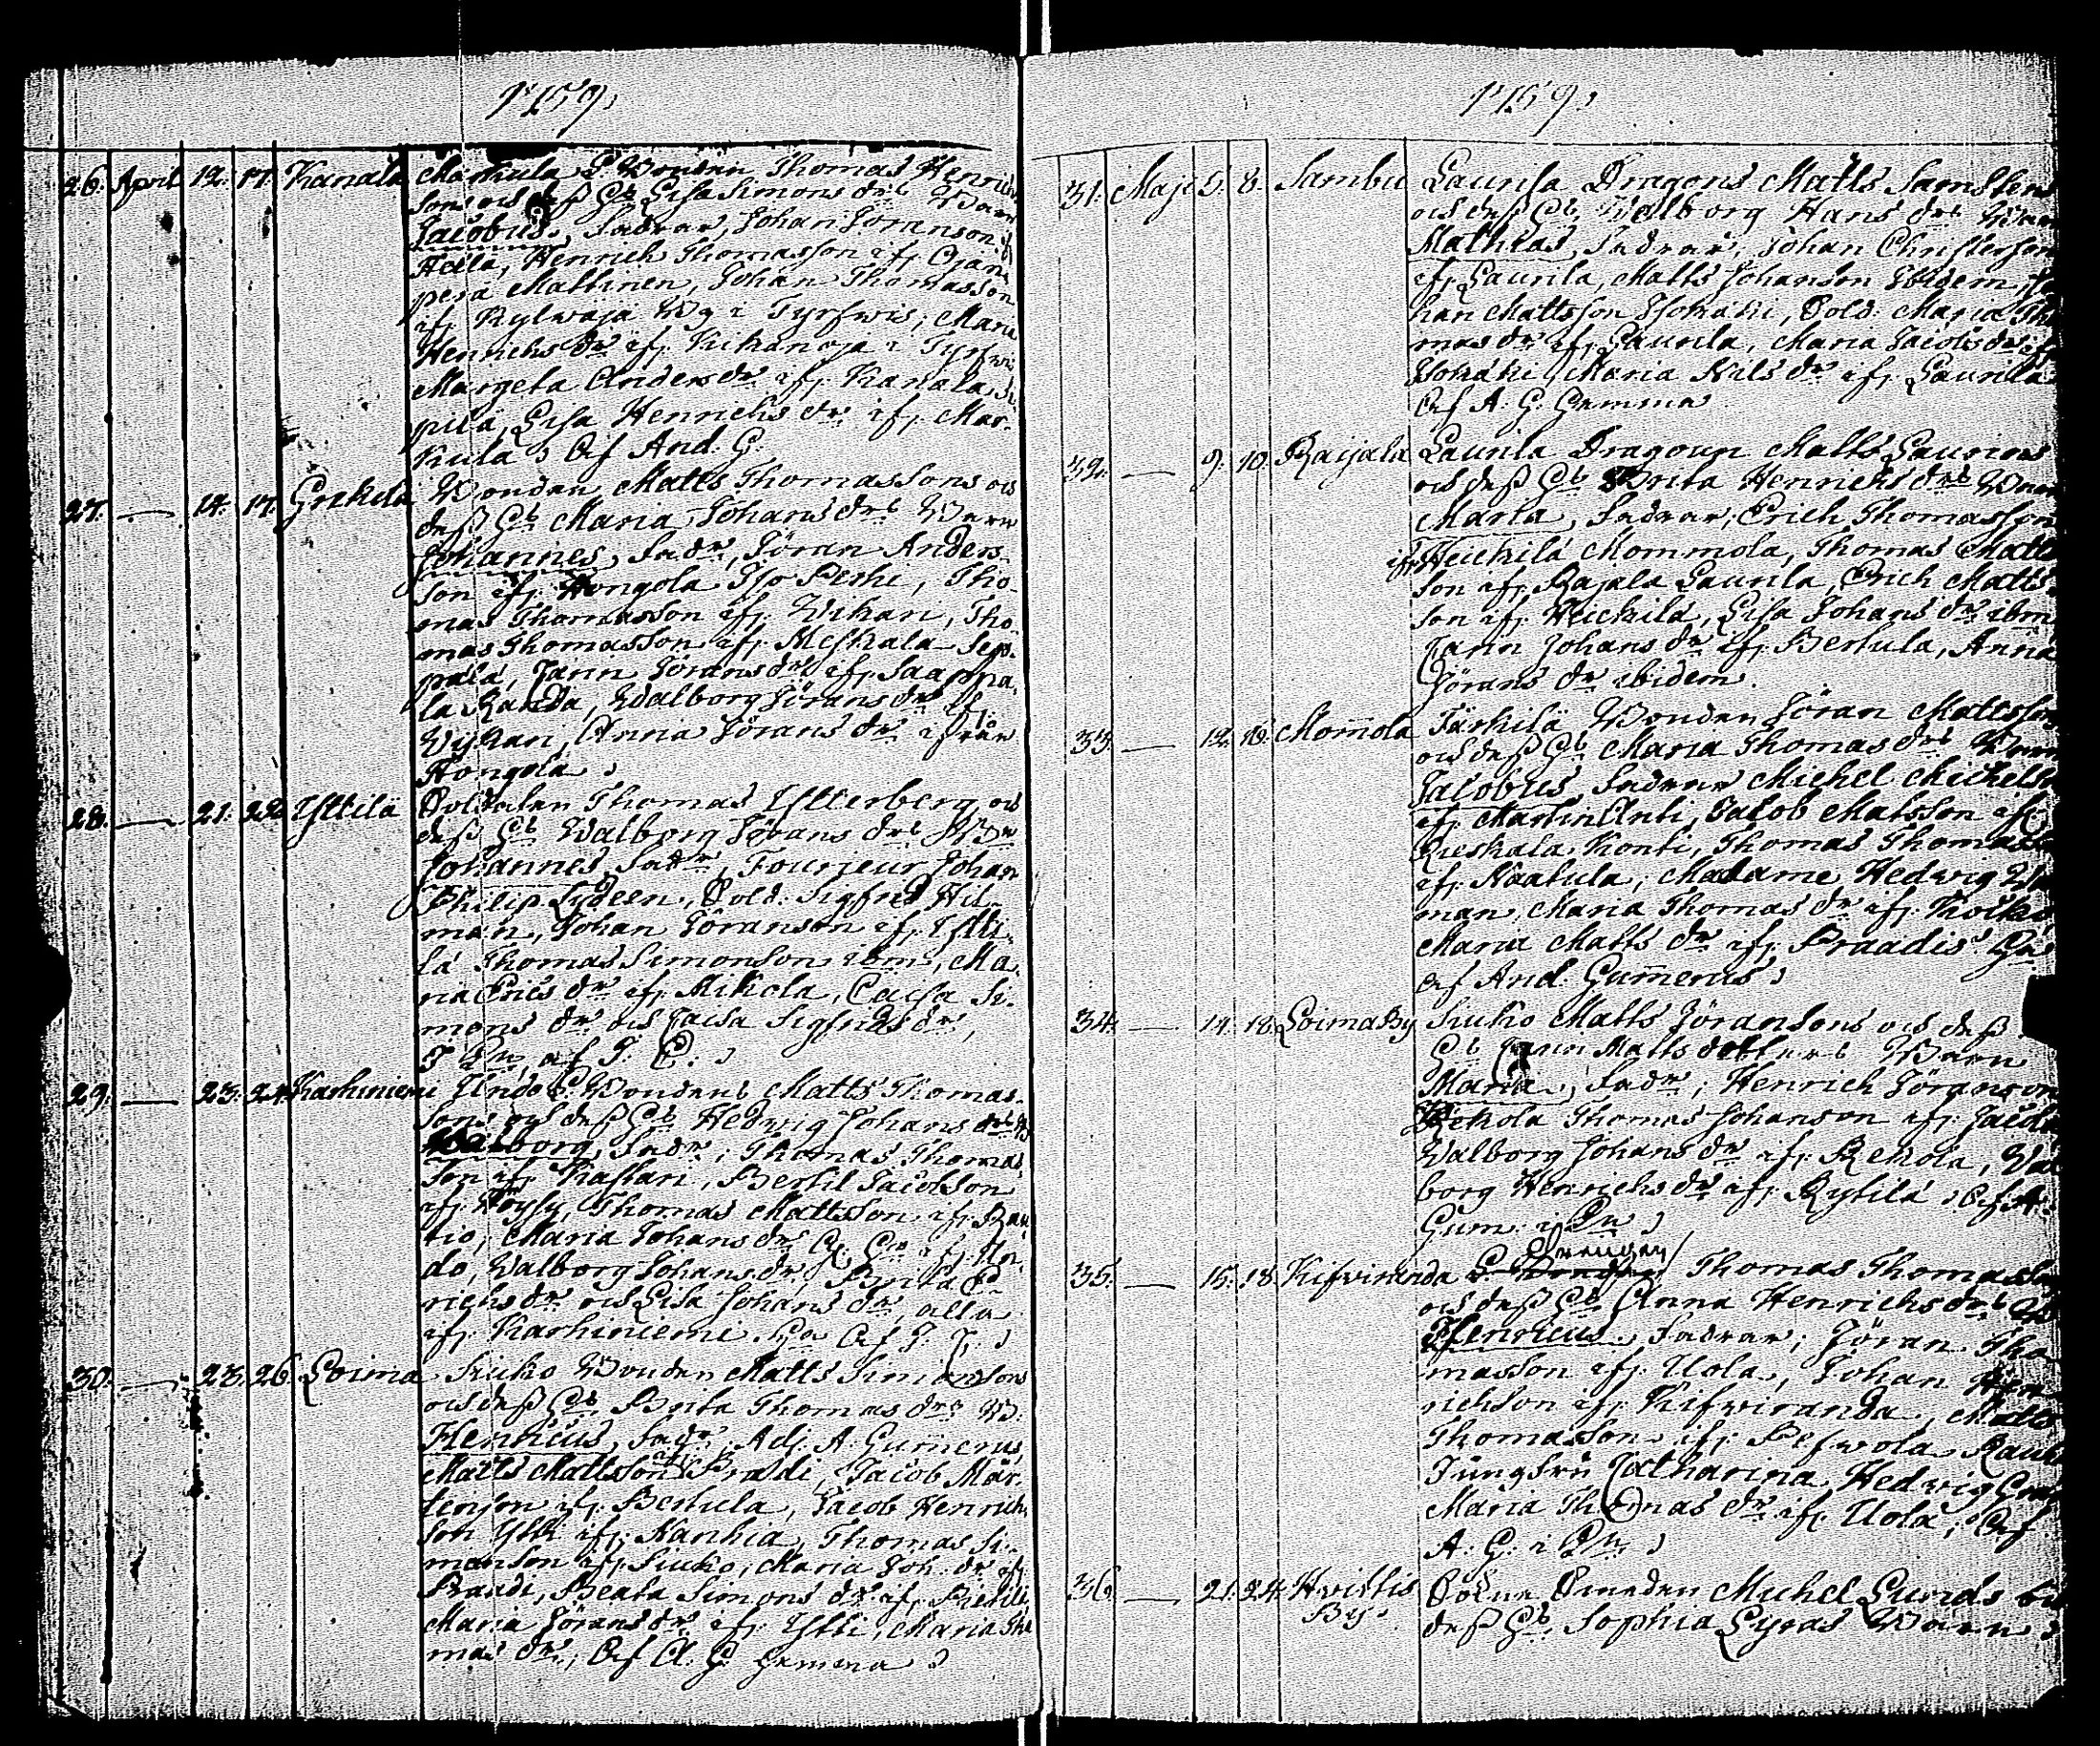 1759,
26. April 12. 17. Kanala Markula L. Bonden Thomas Henrich
sons och deß Hb Lisa Simons drs Barn
Jacobus, Fadrar, Johan Jöranson if
Heila, Henrich Thomasson if: Ojan
perä Mattinen, Johan Thomasson
if: Kylwaja By i Tyrfwis; Maria
Henrichs dr if: Kikanoja i Tyrfwis
Margeta Anders dr if: Kanala Si
pilä, Lisa Henrichs dr if: Mar-
kula; Af And. G.
27. — 14. 17. Bonden Matts Thomassons och
deß Hb Maria Johans drs Barn
Johannes, Fadr, Jöran Anders
son if: Hongola Iso Perhi, Tho-
mas Thomasson if: Wihan, Tho
mas Thomasson if: Meskala Sep-
pälä, Jaan Jörans dr if: Saappa-
la Randa, Walborg Jörans dr if
Wihan, Anna Jörans dr ifrån
Hongola.
28. — 21. 22. Isttilä Soldaten Thomas Isterberg och
deß Hb Walborg Jörans drs Barn
Johannes, Fadr, Fourieur Johan
Philip Lydeen, Sold: Sigfred Hil-
man, Johan Jöranson if: Istti-
lä Thomas Simonson ibm, Ma-
ria Erics dr if: Mikola, Caisa Si-
mons dr och Caisa Sigfrids dr,
29. — 23. 24. Karhiniemi Undo L. Bondens Matts Thomas-
sons och deß Hb Hedwig Johans drs B
Walborg, Fadr; Thomas Thomas
son if: Kastari, Bertil Jacobson
if: Höysy, Thomas Mattsson if: Rau
tio, Maria Johans dr if: Un-
do, Walborg Johans dr, Brita
richs dr och Lisa Johans dr, alla
if: Karhiniemi.
30. — 23. 26. Loima Siuko Bonden Matts Simonsons
och deß Hb Brita Thomas drs B:
Henricus, Fadr; Adj. A: Gum̄erus,
Matts Mattsson Pradi, Jacob Mår-
tenson if: Bertula, Jacob Henrich
son Ylli if: Kanhia, Thomas Si-
monson if: Siuko, Maria Joh: dr if
Praadi, Beata Simons dr if: Pietilä,
Maria Jörans dr if: Istti, Maria Tho
mas dr, Af A: G: hemma
1759,
31. Maji 5. 8. Sambu Laurila Dragons Matts Samstens
och deß Hb Walborg Hans drs Barn
Mathias, Fadrar, Johan Christerson
if: Laurila, Matts Johanson Ibidem, Jo
han Mattsson Isomäki, Sold: Maria Tho
mas dr if: Laurila, Maria Jacobs dr if
Isomäki, Maria Nils dr if: Laurila
Af A: G: hemma
32. — 9. 10. Raijala Laurila Dragoun Matts Laurions
och deß Hb Brita Henrichs drs Barn
Maria, Fadrar; Erich Thomasson
ifr: Heickilä Mommola, Thomas Matts
son if: Rajala Laurila, Erich Matts-
son if: Heickilä, Lisa Johans dr ibm
Jaan Johans dr if: Bertula, Anna
Jörans dr ibidem.
33. — 12. 16. Mom̄ola Tärkilä Bonden Jöran Mattsson
och deß Hb Maria Thomas drs Barn
Jacobus, Fadrar Michel Michels
if: Martin Anti, Jacob Matsson if
Rieskala Konti, Thomas Thomas
if: Naatula, Madame Hedwig
man, Maria Thomas dr if:
Maria Matts dr if: Praadis
Af And: Gum̄erus
34. — 14. 18. Loima By Siuko Matts Jöransons och deß
Hb Jaan Matts dotters Barn
Maria, Fadr; Henrich Jöranson
Rekola Thomas Johanson if:
Walborg Johans dr if: Rekola, Wal
borg Henrichs dr if: Rytilä; Af A:
Gum:
35. — 15. 18. Kifwiranda Drengen Thomas Thomasson
och deß Hb Anna Henrichs drs B
Henricus, Fadrar; Jöran Tho
masson if: Uola, Johan Hen
richson if: Kifwiranda, Matts
Thomasson if: Pefwola
Jungfru Catharina Hedwig
Maria Thomas dr if: Uola; Af
A: G:
36. — 21. 24. Hvittis By Michel Lunds
deß Hb Sophia Lyras Barn